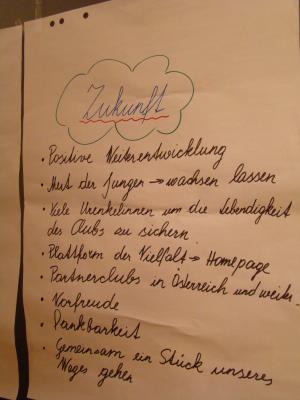 Zukunft
• Positive Weiterentwicklung
• Mut der Jungen → wachsen lassen
• Viele Urenkelinnen um die Lebendigkeit
des Clubs zu sichern
• Plattform der Vielfalt → Homepage
• Partnerclubs in Österreich und weiter..
• Vorfreude
• Dankbarkeit
• Gemeinsam ein Stück unseres
Weges gehen